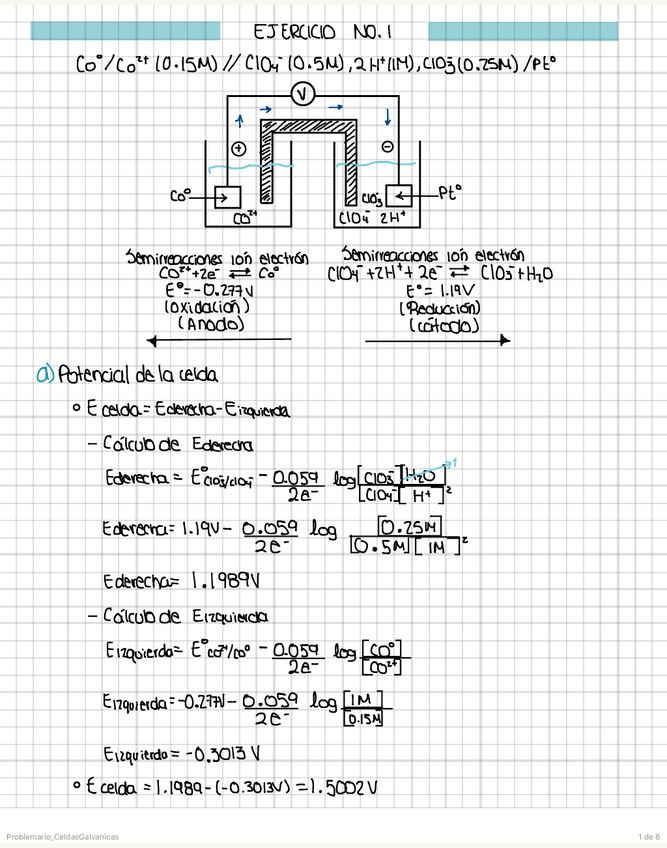 EJERCICIO NO.1
Co°/Co²⁺ (0.15M) // ClO₄⁻ (0.5M), 2H⁺(1M), ClO₃⁻(0.25M) /Pt°
V
+
−
Co°
Co²⁺
ClO₃⁻
ClO₄⁻ 2H⁺
Pt°
Semirreacciones ión electrón
Co²⁺+2e⁻ ⇄ Co°
E°=-0.277V
(oxidación)
(Ánodo)
Semirreacciones ión electrón
ClO₄⁻+2H⁺+2e⁻ ⇄ ClO₃⁻+H₂O
E°= 1.19V
(Reducción)
(cátodo)
a) Potencial de la celda
° E celda= Ederecha-Eizquierda
- Cálculo de Ederecha
Ederecha = E°ClO₃⁻/ClO₄⁻ - 0.059/2e⁻ log [ClO₃⁻][H₂O]/[ClO₄⁻][H⁺]² 1
Ederecha= 1.19V- 0.059/2e⁻ log [0.25M]/[0.5M][1M]²
Ederecha= 1.1989V
- Cálculo de Eizquierda
Eizquierda= E°Co²⁺/Co° - 0.059/2e⁻ log [Co°]/[Co²⁺]
Eizquierda=-0.277V- 0.059/2e⁻ log [1M]/[0.15M]
Eizquierda= -0.3013 V
° E celda = 1.1989-(-0.3013V) =1.5002V
Problemario_CeldasGalvanicas
1 de 6